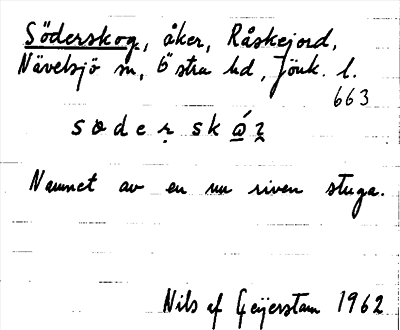 Söderskog, åker, Råskejord,
Nävelsjö sn, Östra hd, Jönk. l.
663
søder̤ skǫ́ʒ
Namnet av en nu riven stuga.
Nils af Geijerstam 1962